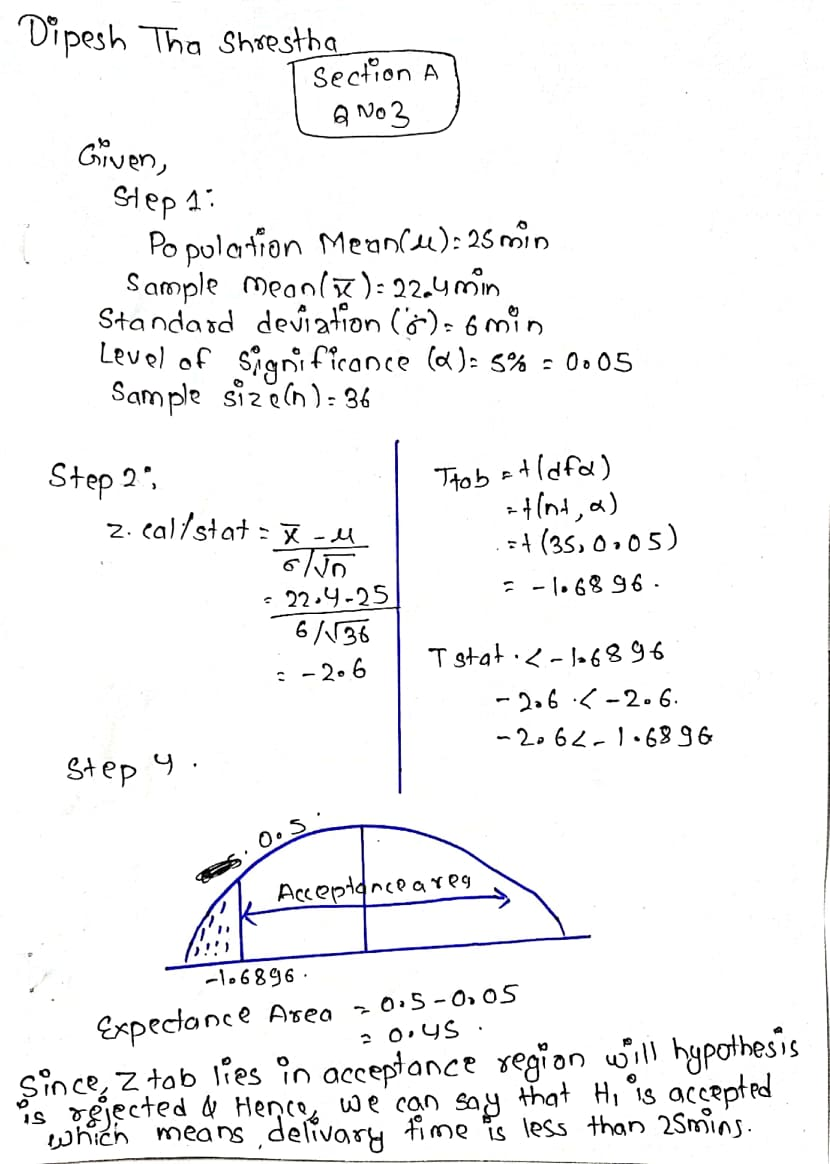 Dipesh Tha Shrestha
Section A
Q No 3
Given,
Step 1:
Population Mean(μ) = 25 min
Sample mean(x̄) = 22.4 min
Standard deviation (σ) = 6 min
Level of significance (α) = 5% = 0.05
Sample size(n) = 36
Step 2:
z. cal/stat = x̄ - μ
σ/√n
= 22.4 - 25
6/√36
= -2.6
Ttab = t(dfα)
= t(n1, α)
= t(35, 0.05)
= -1.6896.
T stat. < -1.6896
-2.6 < -2.6.
-2.6 < -1.6896
Step 4.
0.5.
Acceptance area
-1.6896.
Expectance Area = 0.5 - 0.05
= 0.45.
Since, Z tab lies in acceptance region will hypothesis
is rejected & Hence, we can say that H1 is accepted
which means, delivary time is less than 25mins.